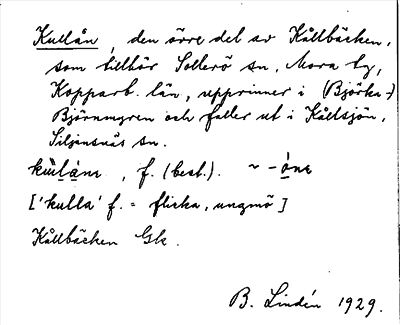 Kullån, den övre del av Kållbäcken,
som tillhör Sollerö sn, Mora tg,
Kopparb. län, upprinner i (Björka-)
Björnmyren och faller ut i Kåltsjön,
Siljansnäs sn.
f. (best.). ~ -óne
['kulla' f. = flicka, ungmö]
Kållbäcken Gk.
B. Lindén 1929.